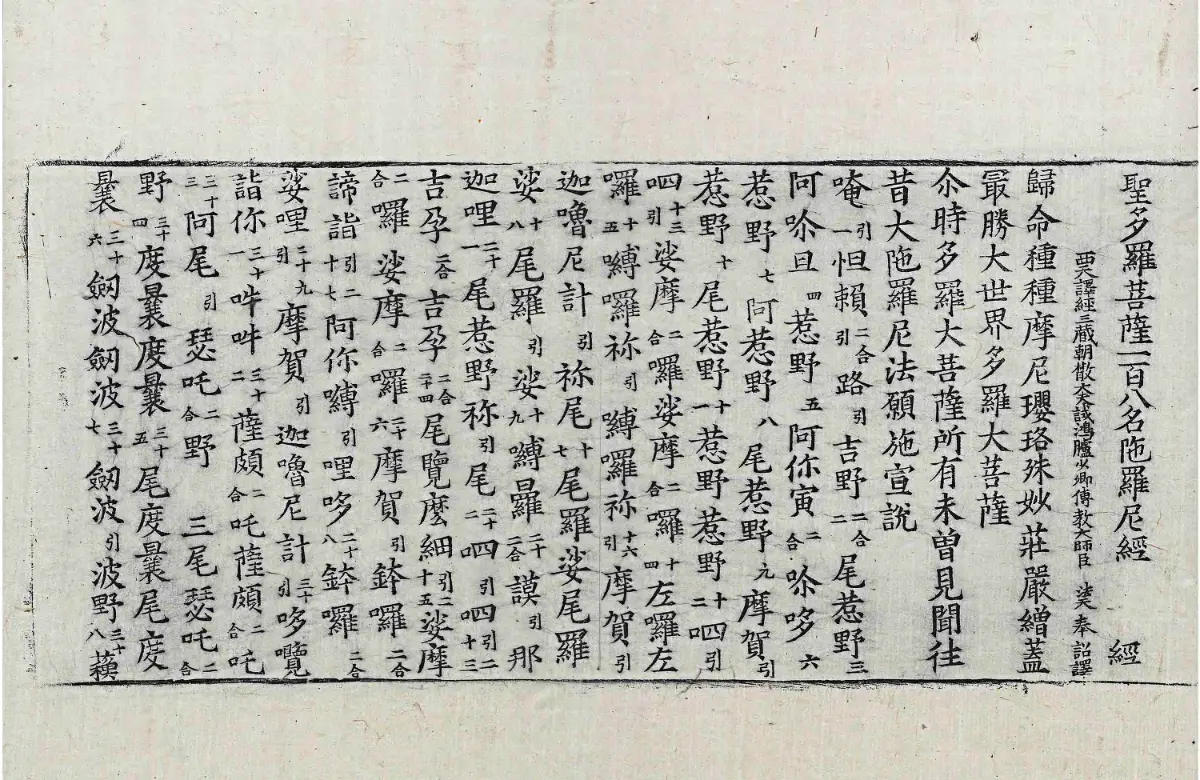 聖多羅菩薩一百八名陁羅尼經　經
西天譯經三藏朝散大夫試鴻臚少卿傳教大師臣　法天奉　詔譯
歸命種種摩尼瓔珞殊妙莊嚴繒蓋
最勝大世界多羅大菩薩
尒時多羅大菩薩所有未曾見聞往
昔大陁羅尼法願施宣說
唵引一怛賴二合引路引吉野二合二尾惹野三
阿㖿旦四惹野五阿你寅二合㖿哆六
惹野七阿惹野八尾惹野九摩賀引
惹野十尾惹野十一惹野惹野十二呬引
呬引十三娑摩二合囉娑摩二合囉十四左囉左
囉十五嚩囉祢引嚩囉祢十六引摩賀引
迦嚕尼計引祢尾十七尾羅娑尾羅
娑十八尾羅引娑十九嚩日羅二合二十謨引那
迦哩二十一尾惹野祢引尾二十二呬引呬引二十三
吉孕二合吉孕二合二十四尾覽麼細引二十五娑摩
二合囉娑摩二合囉二十六摩賀引鉢囉二合
諦詣引二十七阿你嚩引哩哆二十八鉢囉二合
娑哩引二十九摩賀引迦嚕尼計引三十哆㘕
詣你三十一吽吽三十二薩頗二合吒薩頗二合吒
三十三阿尾引瑟吒二合野　三尾瑟吒二合
野三十四度曩度曩三十五尾度曩尾度
曩三十六劒波劒波三十七劒波引波野三十八蘋